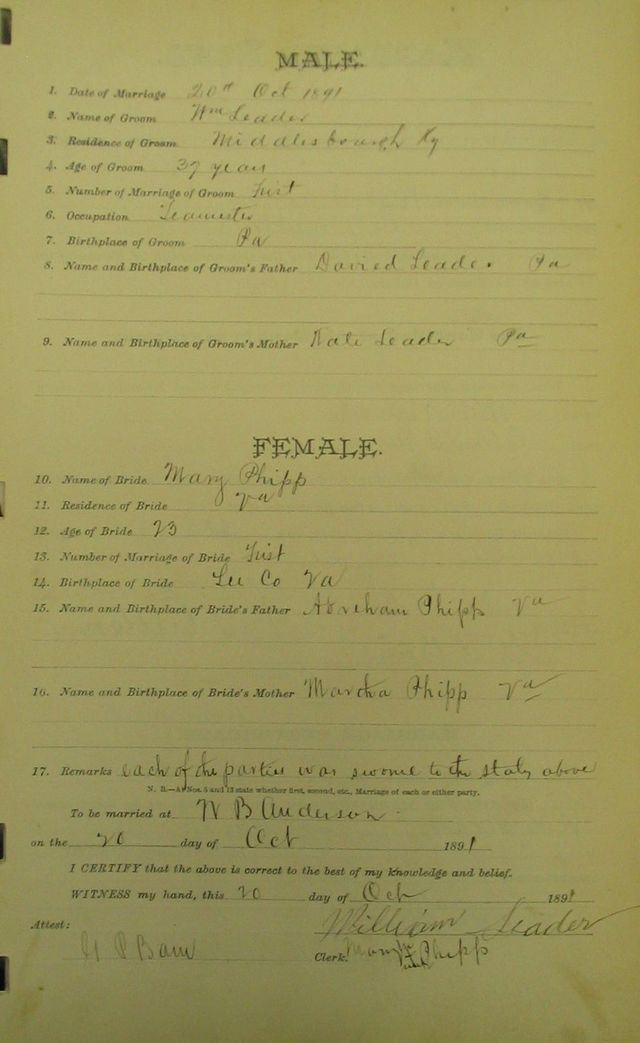 MALE.
1. Date of Marriage 20th Oct 1891
2. Name of Groom Wm Leader
3. Residence of Groom Middlesbourgh Ky
4. Age of Groom 37 years
5. Number of Marriage of Groom First
6. Occupation Teamster
7. Birthplace of Groom Pa
8. Name and Birthplace of Groom's Father Davied Leader Pa
9. Name and Birthplace of Groom's Mother Kate Leader Pa
FEMALE.
10. Name of Bride Mary Phipp
11. Residence of Bride Va
12. Age of Bride 23
13. Number of Marriage of Bride First
14. Birthplace of Bride Lee Co Va
15. Name and Birthplace of Bride's Father Abreham Phipp Va
16. Name and Birthplace of Bride's Mother Martha Phipp Va
17. Remarks each of the parties was sworne to the above
N. B.—At Nos. 5 and 13 state whether first, second, etc., Marriage of each or either party.
To be married at W B Anderson
on the 20 day of Oct 1891
I CERTIFY that the above is correct to the best of my knowledge and belief.
WITNESS my hand, this 20 day of Oct 1891
Attest: William Leader
Clerk. Mary Phipp